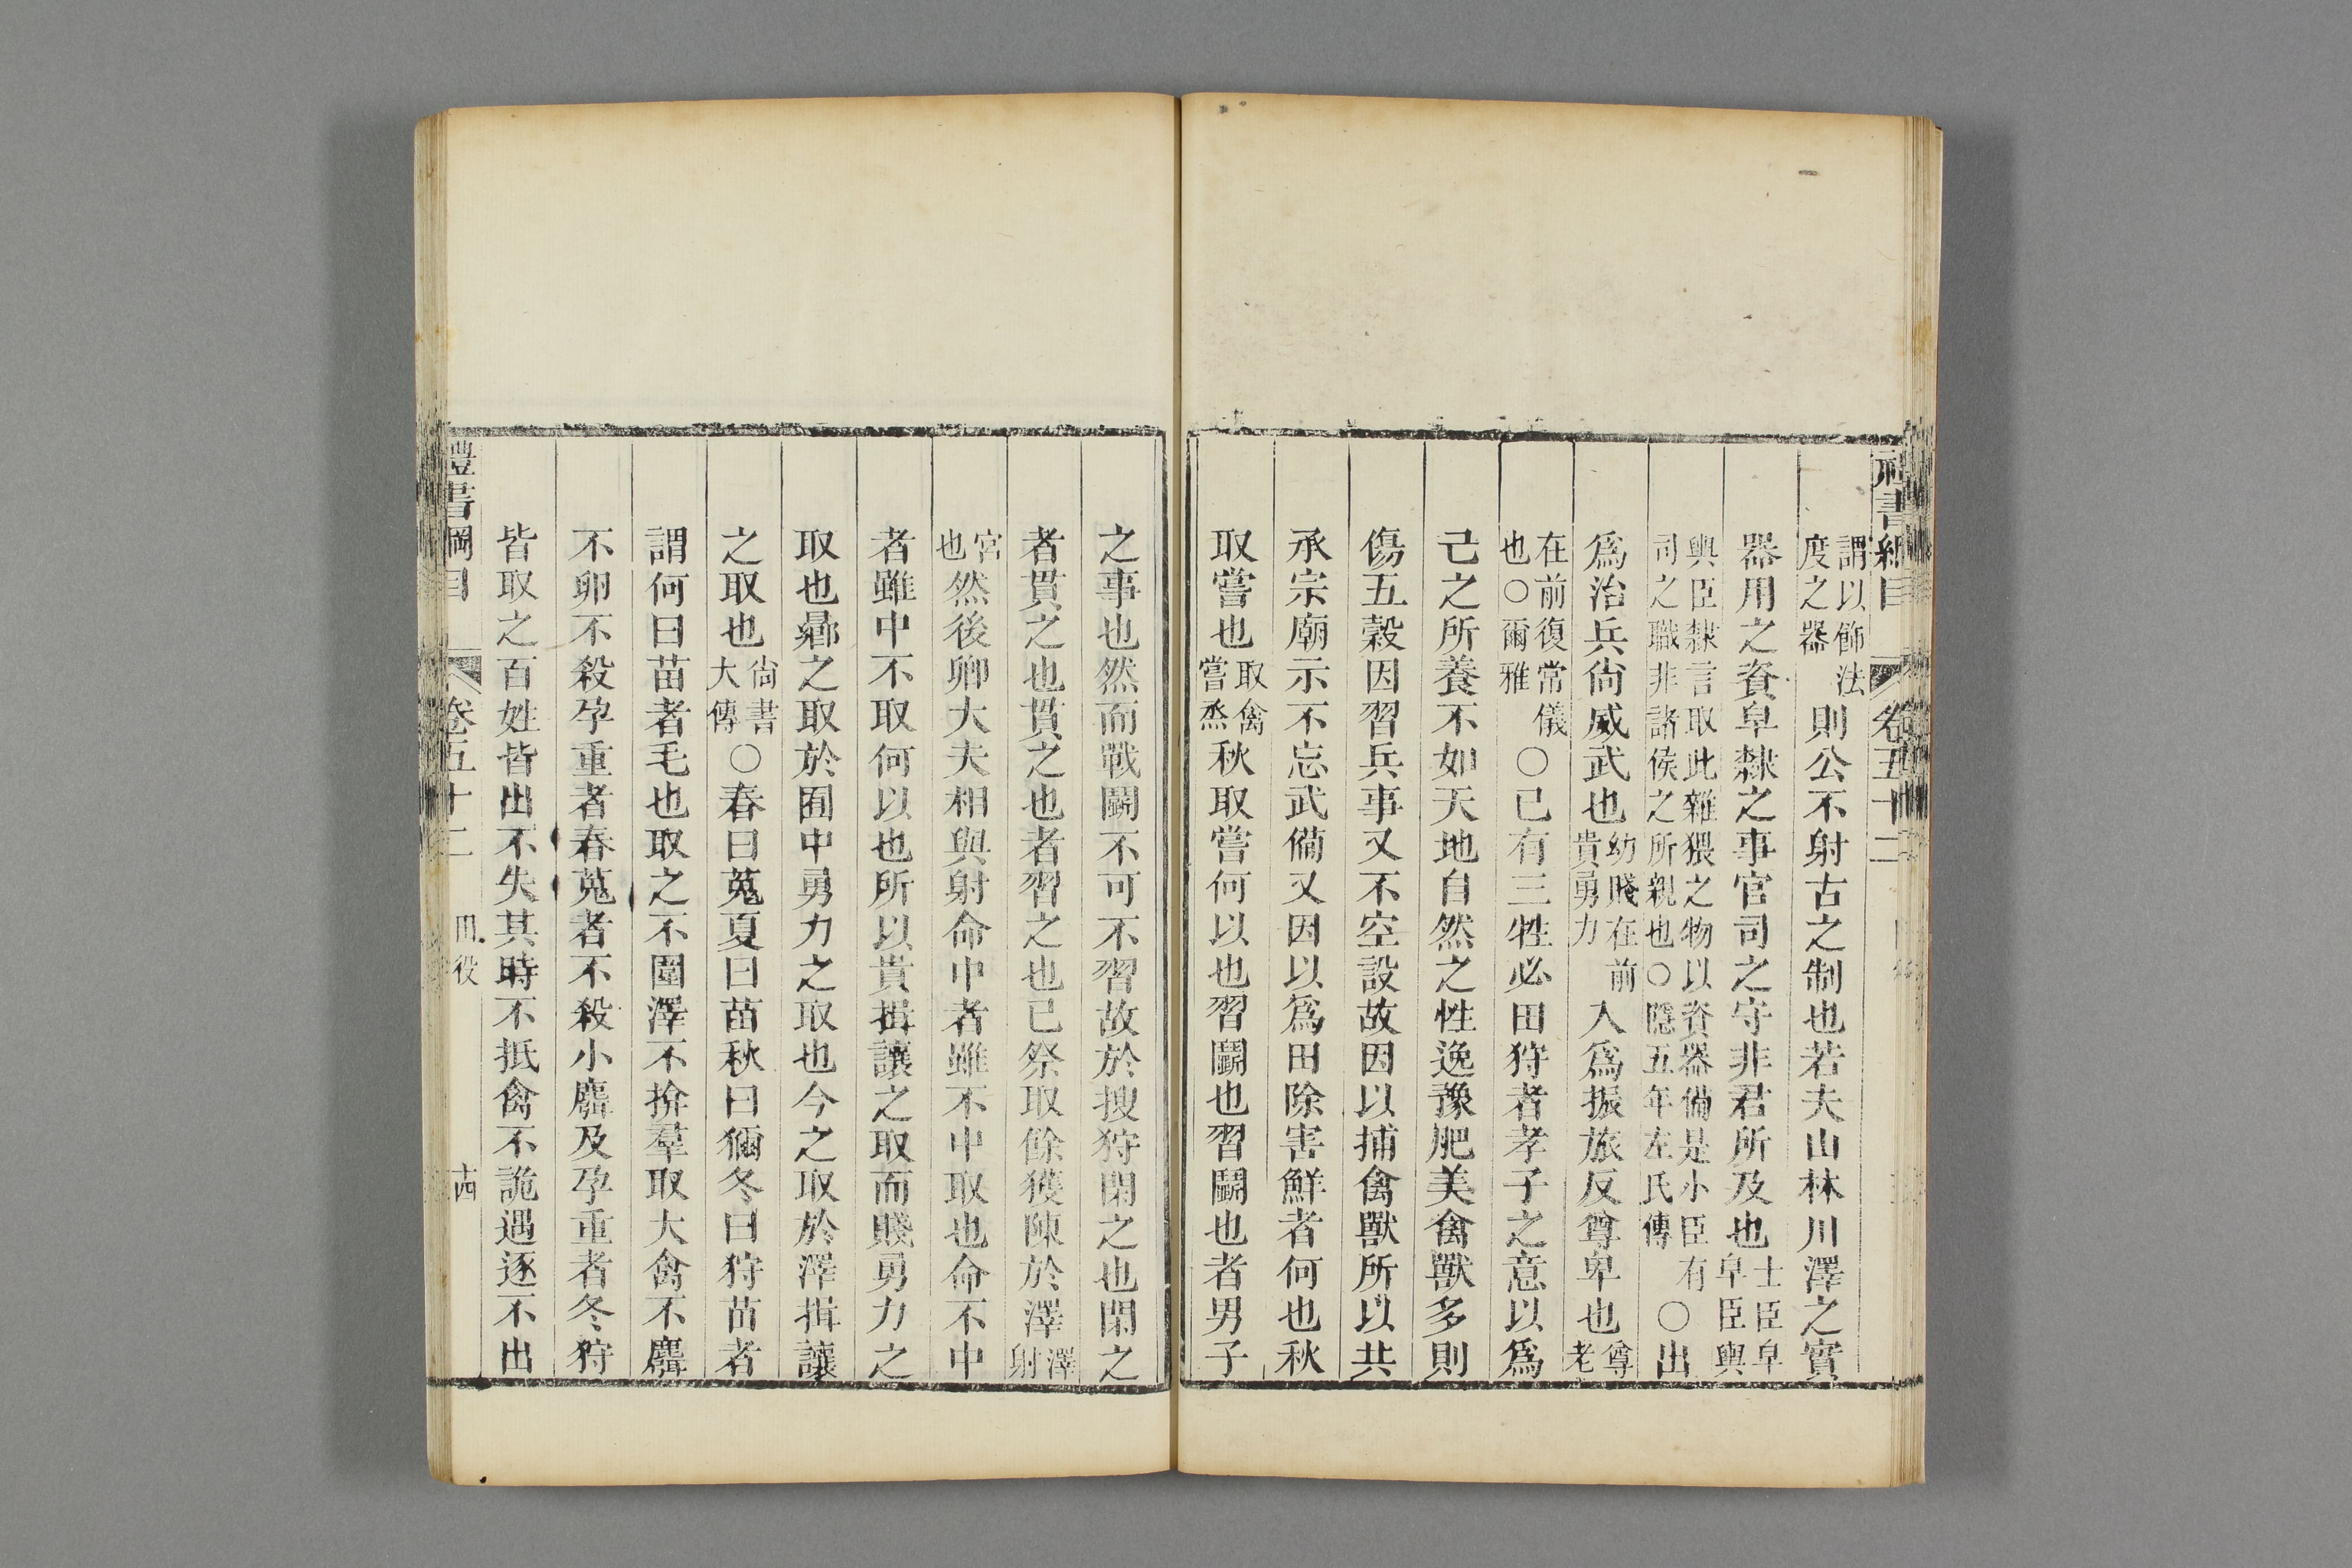 謂以飾法度之器則公不射古之制也若夫山林川澤之實
器用之資皁隸之事官司之守非君所及也士臣皁皁臣輿
輿臣隸言取此雜猥之物以資器備是小臣有司之職非諸侯之所親也○隱五年左氏傳○出
爲治兵尙威武也幼賤在前貴勇力入爲振旅反尊卑也尊老
在前復常儀也○爾雅○己有三牲必田狩者孝子之意以爲
己之所養不如天地自然之性逸豫肥美禽獸多則
傷五穀因習兵事又不空設故因以捕禽獸所以共
承宗廟示不忘武備又因以爲田除害鮮者何也秋
取嘗也取禽嘗烝秋取嘗何以也習鬭也習鬭也者男子
之事也然而戰鬭不可不習故於搜狩閑之也閑之
者貫之也貫之也者習之也已祭取餘獲陳於澤澤射
宮也然後卿大夫相與射命中者雖不中取也命不中
者雖中不取何以也所以貴揖讓之取而賤勇力之
取也曏之取於囿中勇力之取也今之取於澤揖讓
之取也尙書大傳○春曰蒐夏曰苗秋曰獮冬曰狩苗者
謂何曰苗者毛也取之不圍澤不揜羣取大禽不麛
不卵不殺孕重者春蒐者不殺小麛及孕重者冬狩
皆取之百姓皆出不失其時不抵禽不詭遇逐不出
禮書綱目 卷五十二 田役 十四